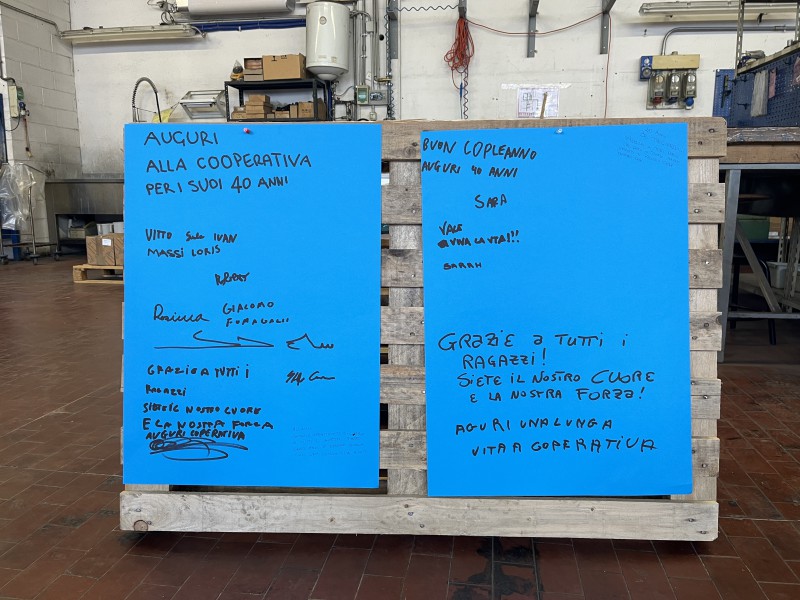 AUGURI
ALLA COOPERATIVA
PER I SUOI 40 ANNI
VITTO IVAN
MASSI LORIS
ROBERT
Rosicca GIACOMO
FUMAGALLI
GRAZIE A TUTTI I
RAGAZZI
SIETE IL NOSTRO CUORE
E LA NOSTRA FORZA
AUGURI COPERATIVA
BUON COPLEANNO
AUGURI 40 ANNI
SARA
VALE
VIVA LA VITA!!
SARAH
GRAZIE A TUTTI i
RAGAZZI!
SIETE IL NOSTRO CUORE
E LA NOSTRA FORZA!
AGURI UNA LUNGA
VITA A COPERATIVA